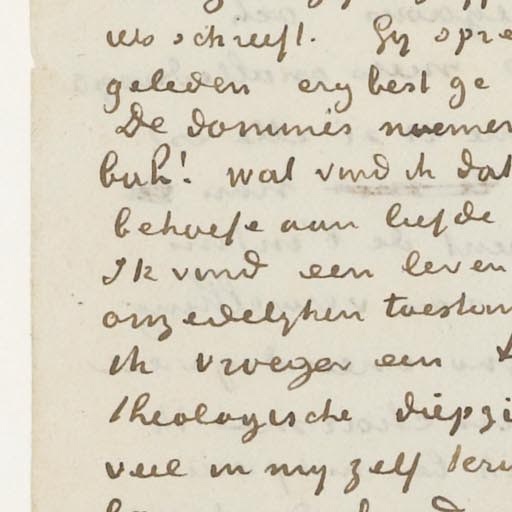 us schrijft. Gij spre
geleden erg best ge
De dominés noemen
bah! wat vind ik dat
behoefte aan liefde
Ik vind een leven
onzedelijken toestan
ik vroeger een
theologische diepzi
veel in mij zelf teru